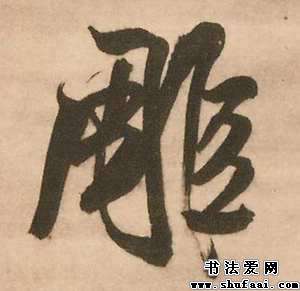 雕
书法爱网
www.shufaai.com